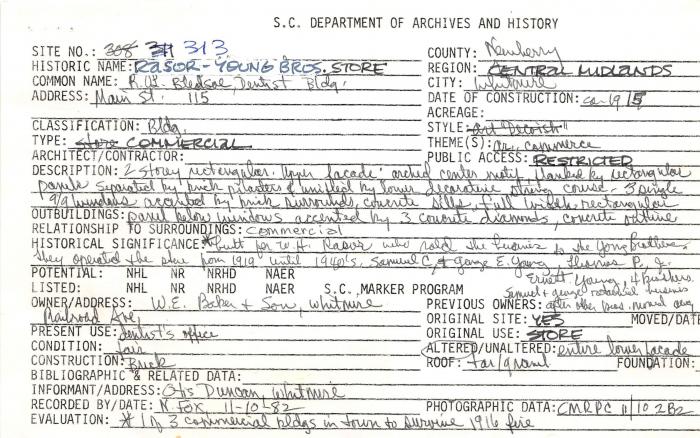 S.C. DEPARTMENT OF ARCHIVES AND HISTORY
SITE NO.: 308 311 313
HISTORIC NAME: RASOR-YOUNG BROS. STORE
COMMON NAME: R.B. Bledsoe, Dentist Bldg.
ADDRESS: Main St. 115
CLASSIFICATION: Bldg.
TYPE: store COMMERCIAL
ARCHITECT/CONTRACTOR:
COUNTY: Newberry
REGION: CENTRAL MIDLANDS
CITY: Whitmire
DATE OF CONSTRUCTION: ca. 1915
ACREAGE:
STYLE: art "Decoish"
THEME(S): ar, commerce
PUBLIC ACCESS: RESTRICTED
DESCRIPTION: 2 story rectangular. Upper facade: arched center motif, flanked by rectangular
panels separated by brick pilasters & unified by lower decorative string course - 3 single
9/9 windows accented by brick surrounds, concrete sills, full width rectangular
OUTBUILDINGS: panel below windows accented by 3 concrete diamonds, concrete outline
RELATIONSHIP TO SURROUNDINGS: commercial
HISTORICAL SIGNIFICANCE: * built for W.H. Rasor who sold the business to the Young brothers
they operated the store from 1919 until 1940's. Samuel C. & George E. Young, Thomas P. &
Ernest Young, 4 brothers.
POTENTIAL: NHL NR NRHD NAER
LISTED: NHL NR NRHD NAER S.C. MARKER PROGRAM
Samuel & George business
OWNER/ADDRESS: W.E. Baker & Son, Whitmire
Railroad Ave.
PREVIOUS OWNERS: after other bros. moved away
ORIGINAL SITE: YES MOVED/DATE
PRESENT USE: dentist's office
ORIGINAL USE: STORE
CONDITION: fair
ALTERED/UNALTERED: entire lower facade
CONSTRUCTION: Brick
ROOF: tar/gravel FOUNDATION:
BIBLIOGRAPHIC & RELATED DATA:
INFORMANT/ADDRESS: Otis Duncan, Whitmire
RECORDED BY/DATE: N Fox, 11-10-82
PHOTOGRAPHIC DATA: CMRPC 11/10 2B2
EVALUATION: * 1 of 3 commercial bldgs in town to survive 1916 fire